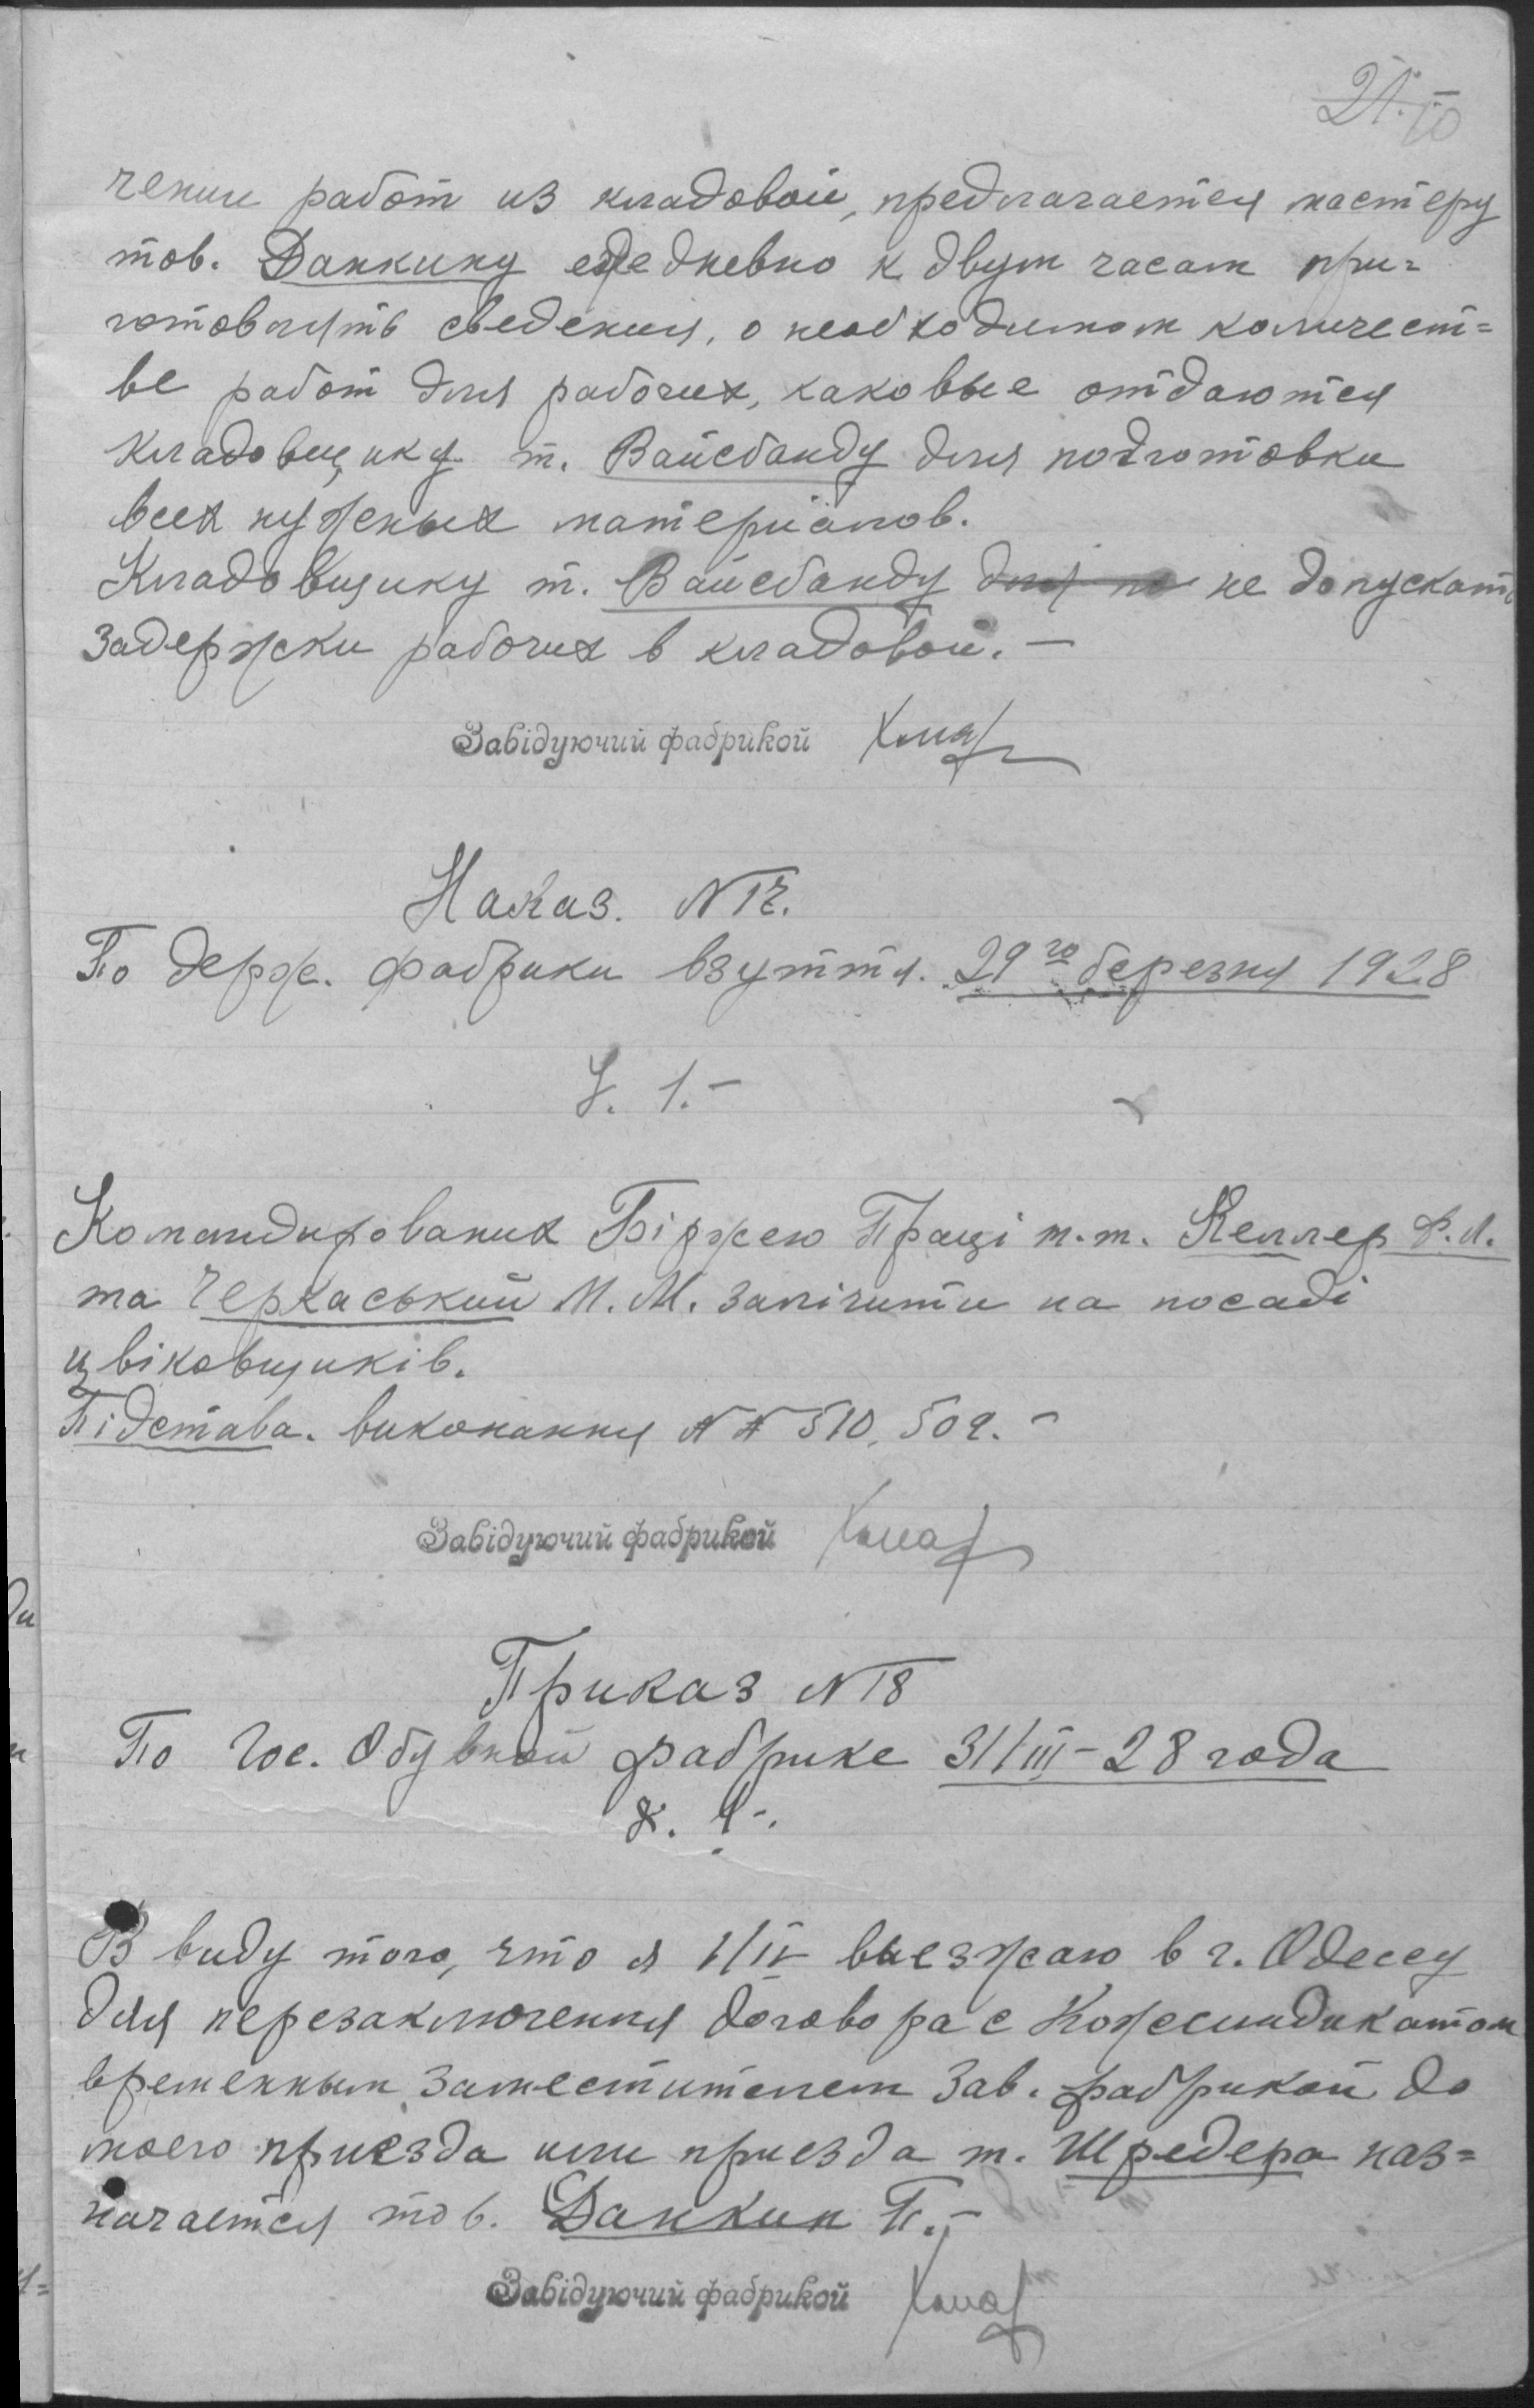 21. 10
чении работ из кладовой, предлагается мастеру
тов. Данкину ежедневно к двум часам при=
готовлять сведения, о необходимом количест=
ве работ для рабочих, каковые отдаются
кладовщику т. Вайсбанду для подготовки
всех нужных материалов.
Кладовщику т. Вайсбанду для по не допускать
задержки рабочих в кладовой. —
Завідуючий фабрикой
Наказ. N 17.
По держ. фабрики взуття. 29го березня 1928
§. 1. –
Командированих Біржею Праці т.т. Келлер Ф. Л.
та Черкаський М. М. залічити на посаді
цвіковщиків.
Підстава. виконання N N 510, 509. –
Завідуючий фабрикой
Приказ N 18
По Гос. Обувной фабрике 31/III – 28 года
§. 1 –.
В виду того, что я 1/IV выезжаю в г. Одессу
для перезаключения договора с Кожсиндикатом
временным заместителем Зав. фабрикой до
моего приезда или приезда т. Шредера наз=
начается тов. Данкин П. –
Завідуючий фабрикой